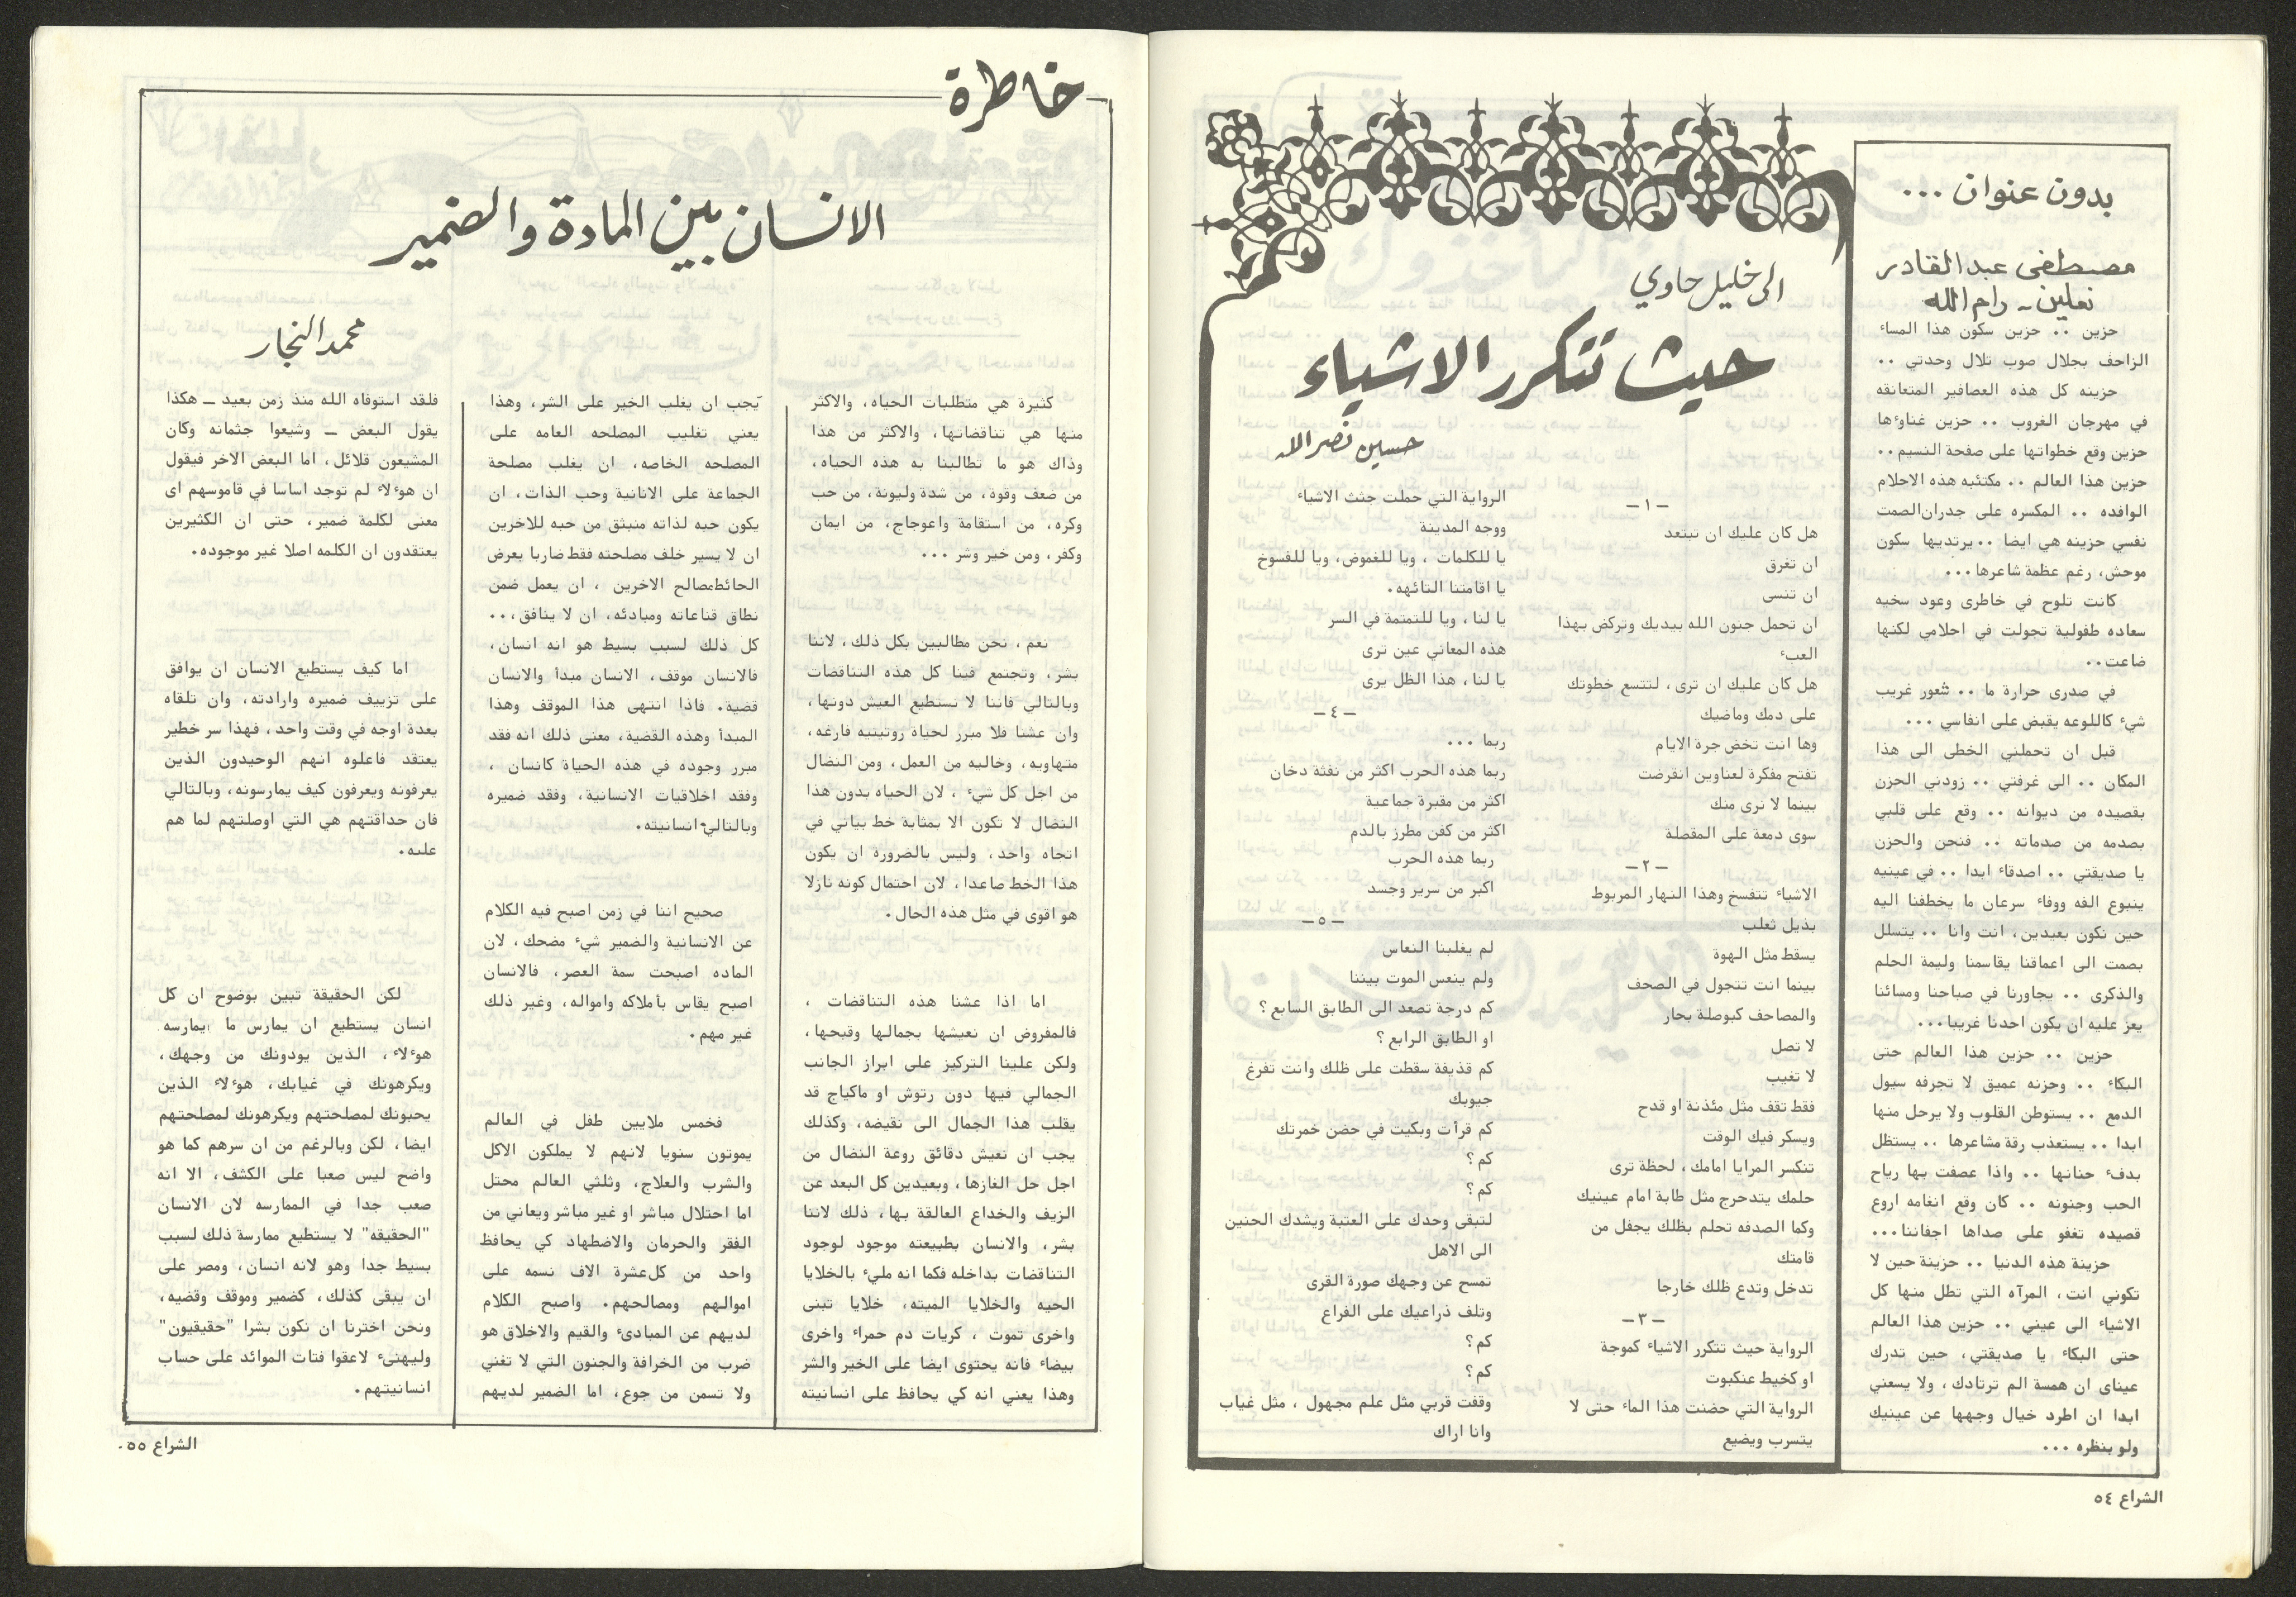 بدون عنوان ...
مصطفى عبدالقادر
نعلين - رام الله
حزين .. حزين سكون هذا المساء
الزاحف بجلال صوب تلال وحدتي ..
حزينه كل هذه العصافير المتعانقه
في مهرجان الغروب .. حزين غناوءها
حزين وقع خطواتها على صفحة النسيم ..
حزين هذا العالم .. مكتئبه هذه الاحلام
الوافده .. المكسره على جدران الصمت
نفسي حزينه هي ايضا .. يرتديها سكون
موحش، رغم عظمة شاعرها ...
كانت تلوح في خاطرى وعود سخيه
سعاده طفولية تجولت في احلامي لكنها
ضاعت ..
في صدرى حرارة ما .. شعور غريب
شيء كاللوعه يقبض على انفاسي ...
قبل ان تحملني الخطى الى هذا
المكان .. الى غرفتي .. زودني الحزن
بقصيده من ديوانه .. وقع على قلبي
بصدمه من صدماته .. فنحن والحزن
يا صديقتي .. اصدقاء ابدا .. في عينيه
ينبوع الفه ووفاء سرعان ما يخطفنا اليه
حين نكون بعيدين، انت وانا .. يتسلل
بصمت الى اعماقنا يقاسمنا وليمة الحلم
والذكرى .. يجاورنا في صباحنا ومسائنا
يعز عليه ان يكون احدنا غريبا ...
حزين .. حزين هذا العالم حتى
البكاء .. وحزنه عميق لا تجرفه سيول
الدمع .. يستوطن القلوب ولا يرحل منها
ابدا .. يستعذب رقة مشاعرها .. يستظل
بدفء حنانها .. واذا عصفت بها رياح
الحب وجنونه .. كان وقع انغامه اروع
قصيده تغفو على صداها اجفاننا ...
حزينة هذه الدنيا .. حزينة حين لا
تكوني انت، المرآه التي تطل منها كل
الاشياء الى عيني .. حزين هذا العالم
حتى البكاء يا صديقتي، حين تدرك
عيناى ان همسة الم ترتادك، ولا يسعني
ابدا ان اطرد خيال وجهها عن عينيك
ولو بنظره ...
الى خليل حاوي
حيث تتكرر الاشياء
حسين نصرالله
- ١ -
هل كان عليك ان تبتعد
ان تغرق
ان تنسى
ان تحمل جنون الله بيديك وتركض بهذا
العبء
هل كان عليك ان ترى، لتتسع خطوتك
على دمك وماضيك
وها انت تخض جرة الايام
تفتح مفكرة لعناوين انقرضت
بينما لا نرى منك
سوى دمعة على المقصلة
- ٢ -
الاشياء تتفسخ وهذا النهار المربوط
بذيل ثعلب
يسقط مثل الهوة
بينما انت تتجول في الصحف
والمصاحف كبوصلة بحار
لا تصل
لا تغيب
فقط تقف مثل مئذنة او قدح
ويسكر فيك الوقت
تنكسر المرايا امامك، لحظة ترى
حلمك يتدحرج مثل طابة امام عينيك
وكما الصدفه تحلم بظلك يجفل من
قامتك
تدخل وتدع ظلك خارجا
- ٣ -
الرواية حيث تتكرر الاشياء كموجة
او كخيط عنكبوت
الرواية التي حضنت هذا الماء حتى لا
يتسرب ويضيع
الرواية التي حملت جثث الاشياء
ووجه المدينة
يا للكلمات ، ويا للغموض، ويا للفسوخ
يا اقامتنا التائهه.
يا لنا ، ويا للتمتمة في السر
هذه المعاني عين ترى
يا لنا ، هذا الظل يرى
- ٤ -
ربما ...
ربما هذه الحرب اكثر من نفثة دخان
اكثر من مقبرة جماعية
اكثر من كفن مطرز بالدم
ربما هذه الحرب
اكبر من سرير وجسد
- ٥ -
لم يغلبنا النعاس
ولم ينعس الموت بيننا
كم درجة تصعد الى الطابق السابع ؟
او الطابق الرابع ؟
كم قذيفة سقطت على ظلك وانت تفرغ
جيوبك
كم قرأت وبكيت في حضن خمرتك
كم ؟
كم ؟
لتبقى وحدك على العتبة ويشدك الحنين
الى الاهل
تمسح عن وجهك صورة القرى
وتلف ذراعيك على الفراغ
كم ؟
كم ؟
وقفت قربي مثل علم مجهول ، مثل غياب
وانا اراك
الشراع ٥٤
خاطرة
الانسان بين المادة والضمير
محمد النجار
كثيرة هي متطلبات الحياه، والاكثر
منها هي تناقضاتها، والاكثر من هذا
وذاك هو ما تطالبنا به هذه الحياه،
من ضعف وقوة، من شدة وليونة، من حب
وكره، من استقامة واعوجاج، من ايمان
وكفر، ومن خير وشر ...
نعم، نحن مطالبين بكل ذلك، لاننا
بشر، وتجتمع فينا كل هذه التناقضات
وبالتالي فاننا لا نستطيع العيش دونها،
وان عشنا فلا مبرر لحياه روتينيه فارغه،
متهاويه، وخاليه من العمل، ومن النضال
من اجل كل شيء ، لان الحياه بدون هذا
النضال لا تكون الا بمثابة خط بياني في
اتجاه واحد، وليس بالضروره ان يكون
هذا الخط صاعدا، لان احتمال كونه نازلا
هو اقوى في مثل هذه الحال.
اما اذا عشنا هذه التناقضات ،
فالمفروض ان نعيشها بجمالها وقبحها،
ولكن علينا التركيز على ابراز الجانب
الجمالي فيها دون رتوش او ماكياج قد
يقلب هذا الجمال الى نقيضه، وكذلك
يجب ان نعيش دقائق روعة النضال من
اجل حل الغازها، وبعيدين كل البعد عن
الزيف والخداع العالقة بها، ذلك لاننا
بشر، والانسان بطبيعته موجود لوجود
التناقضات بداخله فكما انه مليء بالخلايا
الحيه والخلايا الميته، خلايا تبنى
واخرى تموت ، كريات دم حمراء واخرى
بيضاء فانه يحتوى ايضا على الخير والشر
وهذا يعني انه كي يحافظ على انسانيته
يجب ان يغلب الخير على الشر، وهذا
يعني تغليب المصلحه العامه على
المصلحه الخاصه، ان يغلب مصلحة
الجماعة على الانانية وحب الذات، ان
يكون حبه لذاته منبثق من حبه للاخرين
ان لا يسير خلف مصلحته فقط ضاربا بعرض
الحائط مصالح الاخرين ، ان يعمل ضمن
نطاق قناعاته ومبادئه، ان لا ينافق،..
كل ذلك لسبب بسيط هو انه انسان،
فالانسان موقف، الانسان مبدأ والانسان
قضية. فاذا انتهى هذا الموقف وهذا
المبدأ وهذه القضية، معنى ذلك انه فقد
مبرر وجوده في هذه الحياة كانسان ،
وفقد اخلاقيات الانسانية، وفقد ضميره
وبالتالي انسانيته.
صحيح اننا في زمن اصبح فيه الكلام
عن الانسانية والضمير شيء مضحك، لان
الماده اصبحت سمة العصر، فالانسان
اصبح يقاس بأملاكه وامواله، وغير ذلك
غير مهم.
فخمس ملايين طفل في العالم
يموتون سنويا لانهم لا يملكون الاكل
والشرب والعلاج، وثلثي العالم محتل
اما احتلال مباشر او غير مباشر ويعاني من
الفقر والحرمان والاضطهاد كي يحافظ
واحد من كل عشرة الاف نسمه على
اموالهم ومصالحهم. واصبح الكلام
لديهم عن المبادىء والقيم والاخلاق هو
ضرب من الخرافة والجنون التي لا تغني
ولا تسمن من جوع، اما الضمير لديهم
فلقد استوفاه الله منذ زمن بعيد - هكذا
يقول البعض - وشيعوا جثمانه وكان
المشيعون قلائل، اما البعض الاخر فيقول
ان هوءلاء لم توجد اساسا في قاموسهم اى
معنى لكلمة ضمير، حتى ان الكثيرين
يعتقدون ان الكلمه اصلا غير موجوده.
اما كيف يستطيع الانسان ان يوافق
على تزييف ضميره وارادته، وان تلقاه
بعدة اوجه في وقت واحد، فهذا سر خطير
يعتقد فاعلوه انهم الوحيدون الذين
يعرفونه ويعرفون كيف يمارسونه، وبالتالي
فان حداقتهم هي التي اوصلتهم لما هم
عليه.
لكن الحقيقة تبين بوضوح ان كل
انسان يستطيع ان يمارس ما يمارسه
هوءلاء، الذين يودونك من وجهك،
ويكرهونك في غيابك، هوءلاء الذين
يحبونك لمصلحتهم ويكرهونك لمصلحتهم
ايضا، لكن وبالرغم من ان سرهم كما هو
واضح ليس صعبا على الكشف، الا انه
صعب جدا في الممارسه لان الانسان
"الحقيقه" لا يستطيع ممارسة ذلك لسبب
بسيط جدا وهو لانه انسان، ومصر على
ان يبقى كذلك، كضمير وموقف وقضيه،
ونحن اخترنا ان نكون بشرا "حقيقيون"
وليهنىء لاعقوا فتات الموائد على حساب
انسانيتهم.
الشراع ٥٥